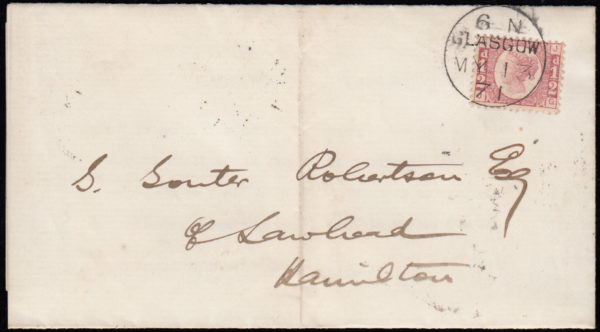 6 N
GLASGOW
MY 1
71
½d ½d
S. Souter Robertson Esq
of Lawhead
Hamilton